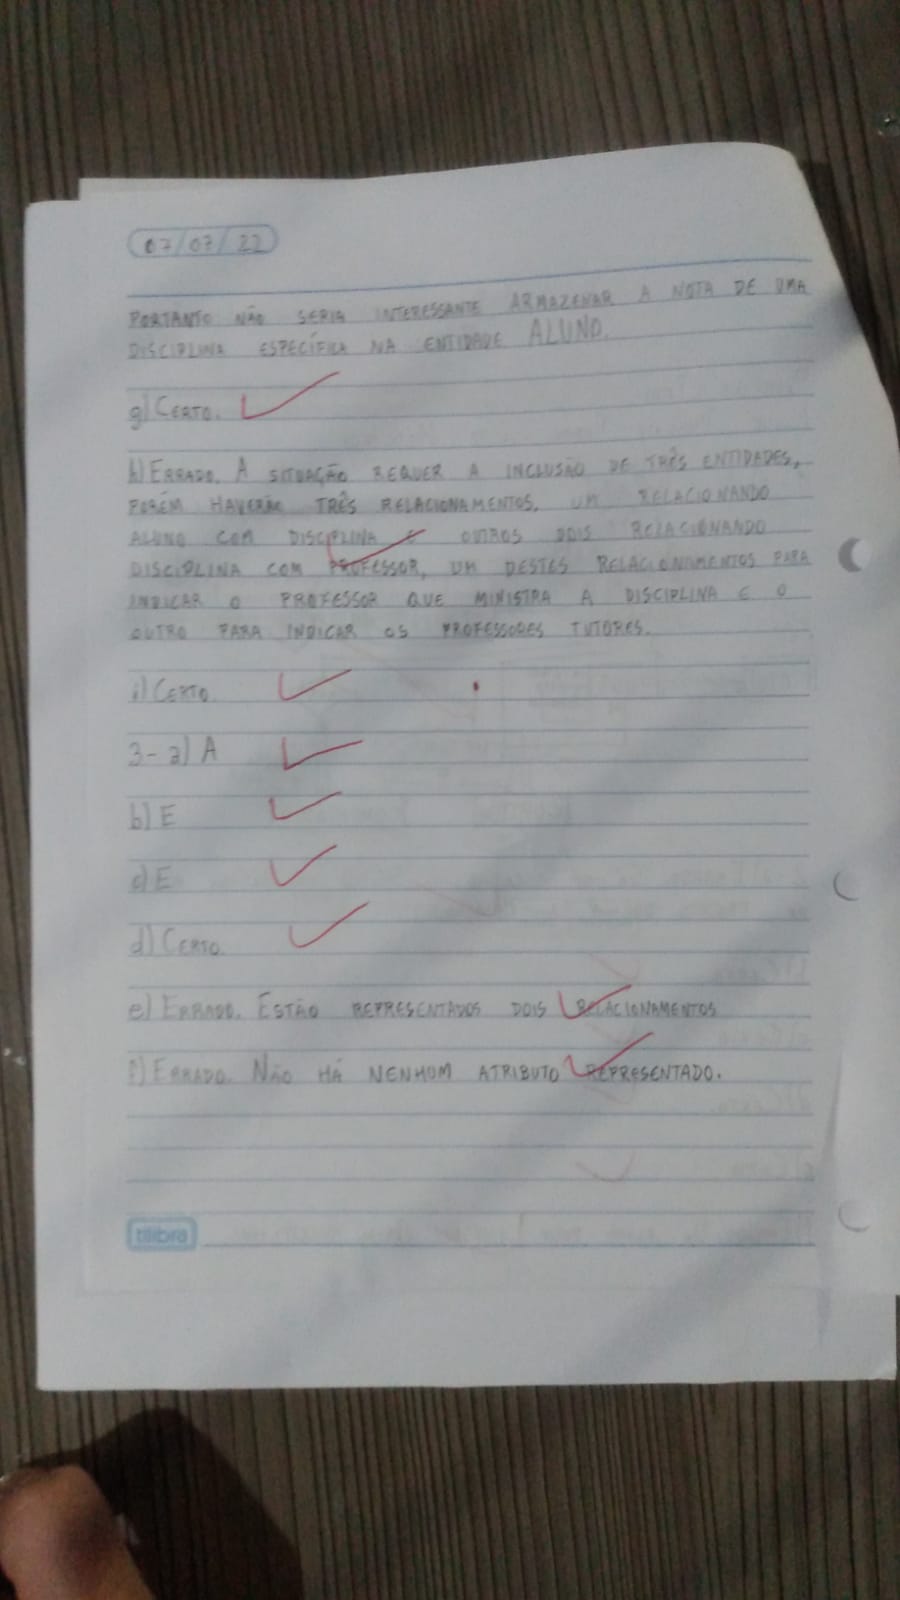 07/07/22
PORTANTO NÃO SERIA INTERESSANTE ARMAZENAR A NOTA DE UMA
DISCIPLINA ESPECÍFICA NA ENTIDADE ALUNO.
g) CERTO.
h) ERRADO. A SITUAÇÃO REQUER A INCLUSÃO DE TRÊS ENTIDADES,
PORÉM HAVERÃO TRÊS RELACIONAMENTOS, UM RELACIONANDO
ALUNO COM DISCIPLINA E OUTROS DOIS RELACIONANDO
DISCIPLINA COM PROFESSOR, UM DESTES RELACIONAMENTOS PARA
INDICAR O PROFESSOR QUE MINISTRA A DISCIPLINA E O
OUTRO PARA INDICAR OS PROFESSORES TUTORES.
i) CERTO
3- a) A
b) E
c) E
d) CERTO
e) ERRADO. ESTÃO REPRESENTADOS DOIS RELACIONAMENTOS
f) ERRADO. NÃO HÁ NENHUM ATRIBUTO REPRESENTADO.
tilibra